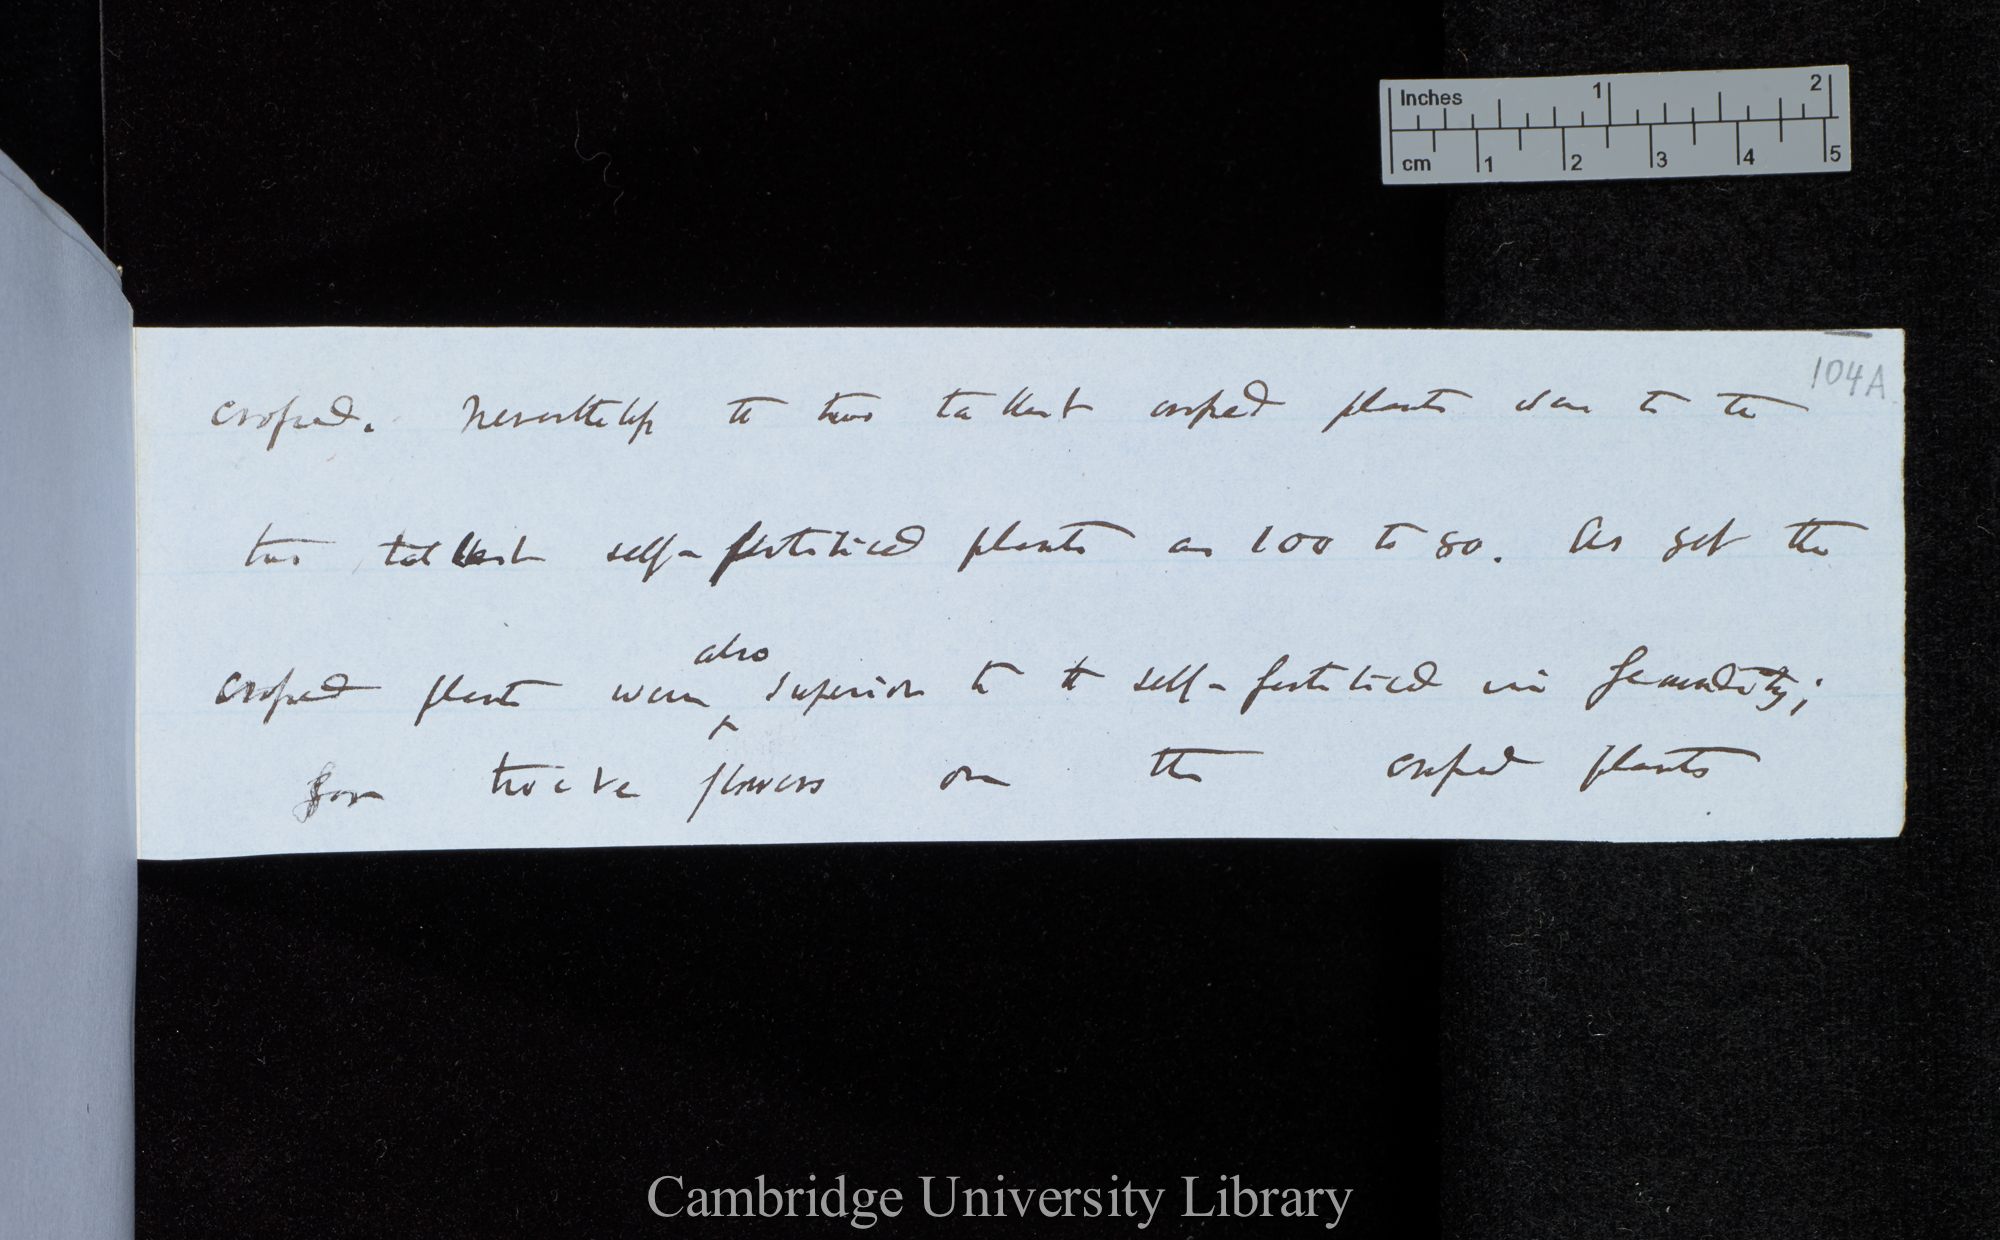 Inches 1 2
cm 1 2 3 4 5
104A
crossed. Nevertheless the two tallest crossed plants were to the
two tallest self-fertilised plants as 100 to 80. As yet the
also
crossed plants were superior to the self-fertilised in fecundity;
for twelve flowers on the crossed plants
Cambridge University Library